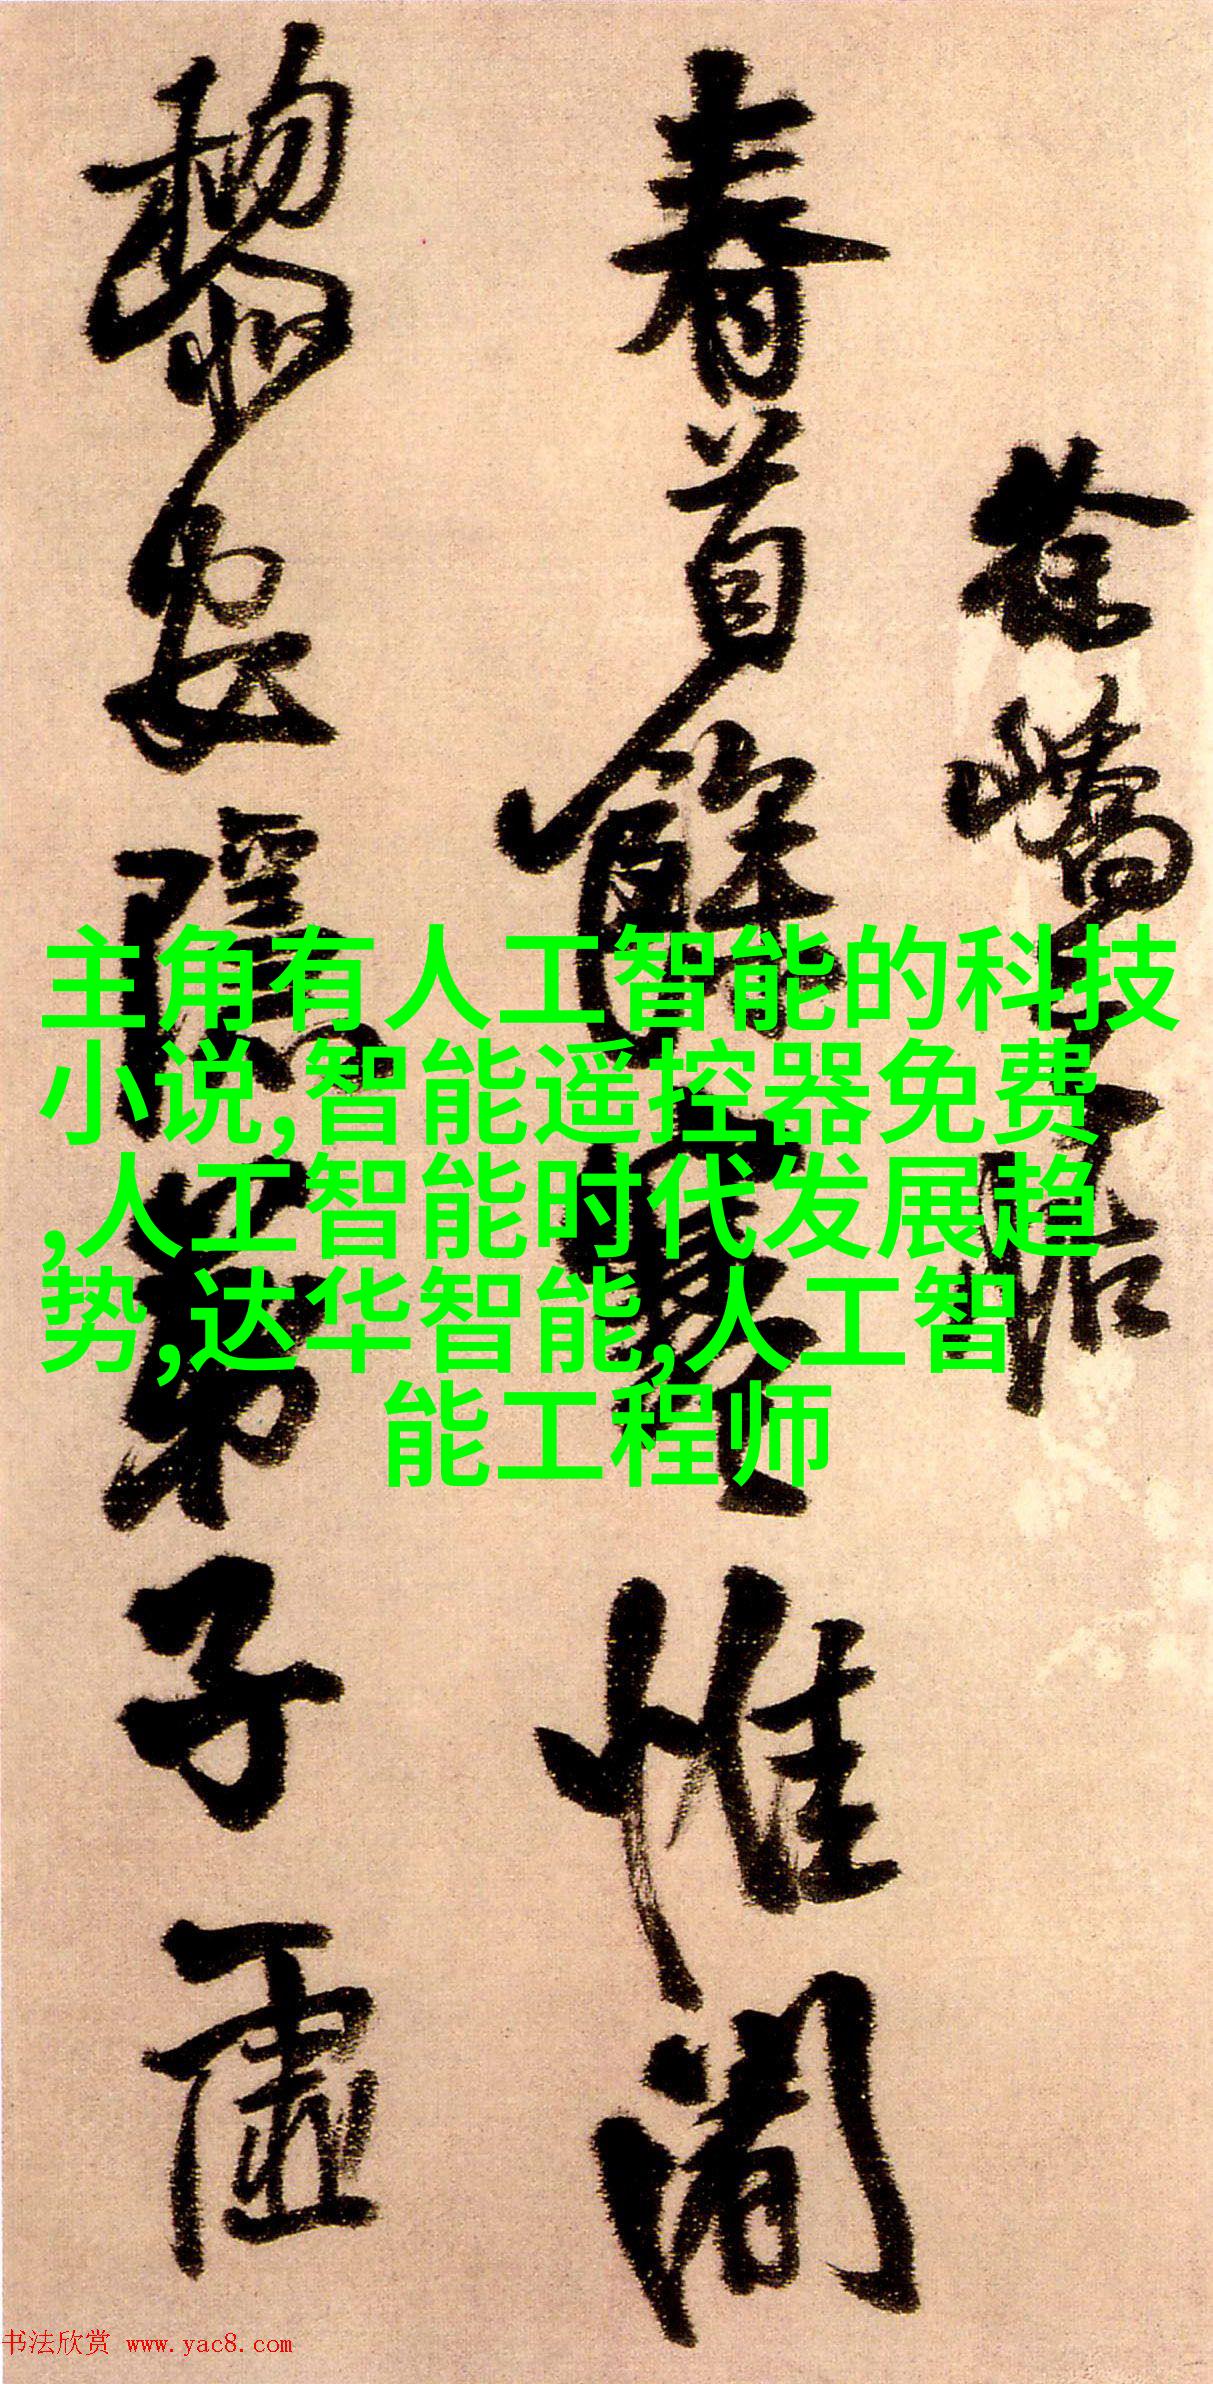 徐嶠之帖
春首餘寒惟闍
黎安隱弟子虛
主角有人工智能的科技
小说,智能遥控器免费
,人工智能时代发展趋
势,达华智能,人工智
能工程师
书法欣赏 www.yac8.com